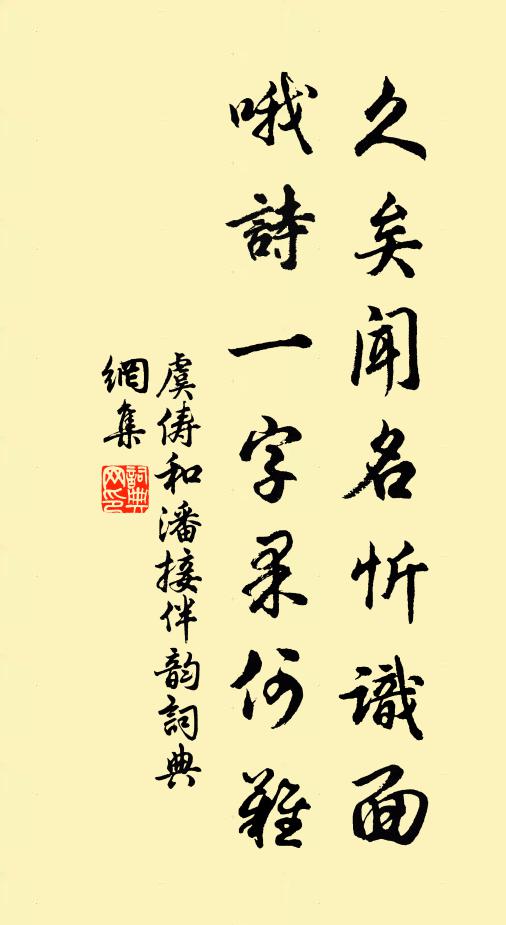 久矣闻名忻識面
哦詩一字果何難
虞俦和潘接伴韵詞典
網集
詞典
网印